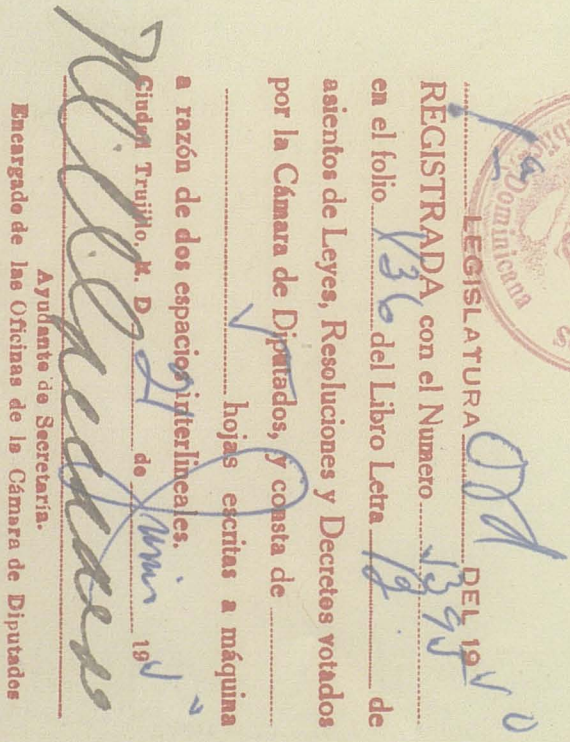 Dominicana
1a LEGISLATURA Ord DEL 19
REGISTRADA con el Numero
en el folio 136 del Libro Letra de
asientos de Leyes, Resoluciones y Decretos votados
por la Cámara de Diputados, y consta de
hojas escritas a máquina
a razón de dos espacios interlineales.
Ciudad Trujillo, R. D. 21 de Junio 19
Ayudante de Secretaría.
Encargado de las Oficinas de la Cámara de Diputados